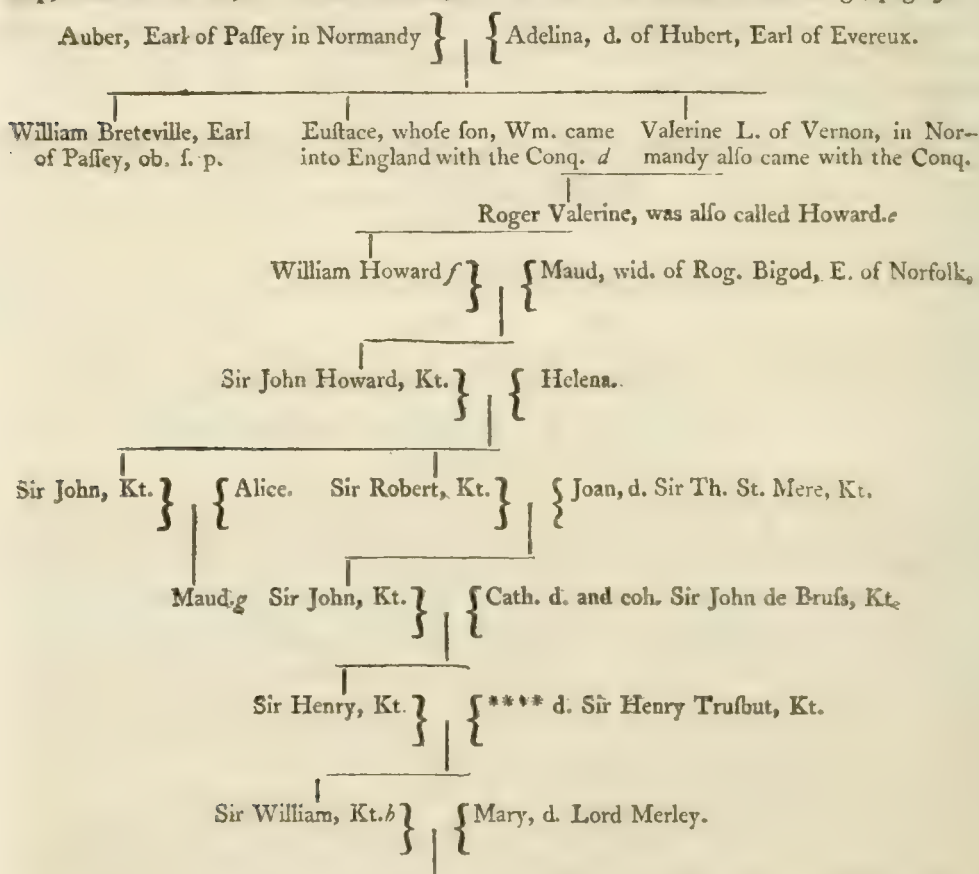 Auber, Earl of Paſſey in Normandy } { Adelina, d. of Hubert, Earl of Evereux.
William Breteville, Earl of Paſſey, ob. ſ. p.
Euſtace, whoſe ſon, Wm. came into England with the Conq. d
Valerine L. of Vernon, in Normandy alſo came with the Conq.
Roger Valerine, was alſo called Howard.e
William Howard f } { Maud, wid. of Rog. Bigod, E. of Norfolk.
Sir John Howard, Kt. } { Helena.
Sir John, Kt. } { Alice. Sir Robert, Kt. } { Joan, d. Sir Th. St. Mere, Kt.
Maud.g Sir John, Kt. } { Cath. d. and coh. Sir John de Bruſs, Kt.
Sir Henry, Kt. } { **** d. Sir Henry Truſbut, Kt.
Sir William, Kt.h } { Mary, d. Lord Merley.